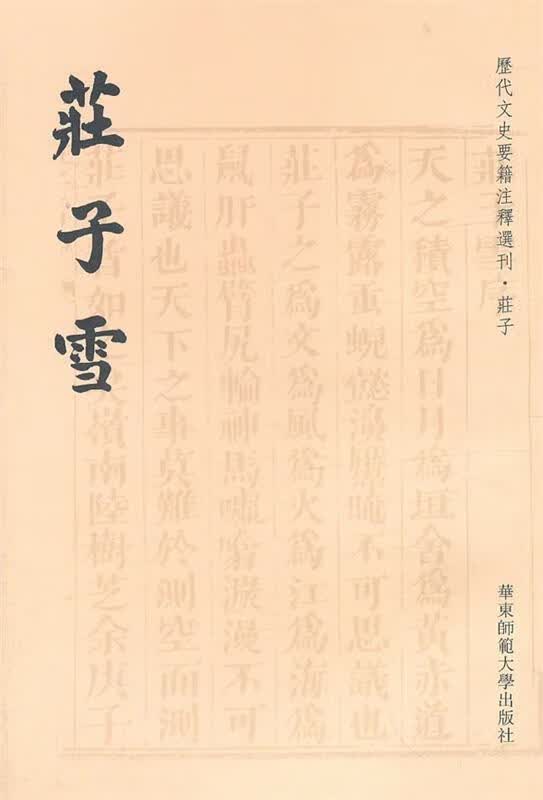 歷代文史要籍注釋選刊·莊子
莊子雪
華東師範大學出版社
天之積空爲日月爲垣舍爲黃赤道
爲霧露虹蜺
不可思議也
莊子之爲文爲風爲火爲江爲海爲
鼠肝蟲臂尻輪神馬
不可
思議也天下之事莫難於測空而測
南陸樹芝余庚子